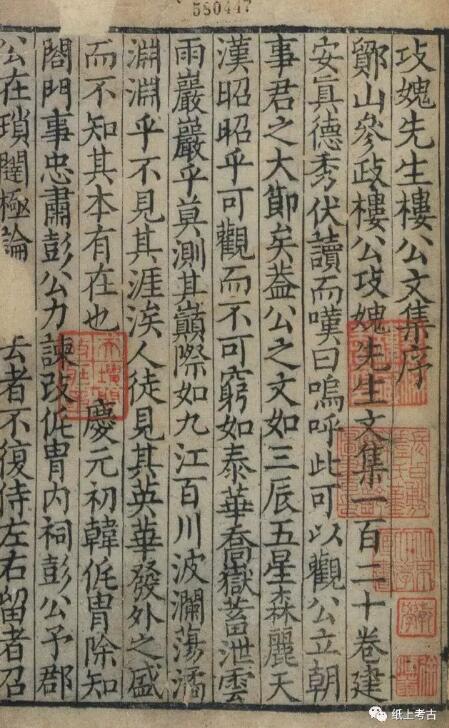 580447
攻媿先生樓公文集序
鄮山參政樓公攻媿先生文集一百二十卷建
安眞德秀伏讀而嘆曰嗚呼此可以觀公立朝
事君之大節矣葢公之文如三辰五星森麗天
漢昭昭乎可觀而不可窮如泰華喬嶽蓄泄雲
雨巖巖乎莫測其巔際如九江百川波瀾蕩潏
淵淵乎不見其涯涘人徒見其英華發外之盛
而不知其本有在也 慶元初韓侂冑除知
閤門事忠肅彭公力諫攻侂冑內祠彭公予郡
公在瑣闥極論 去者不復侍左右留者召
纸上考古